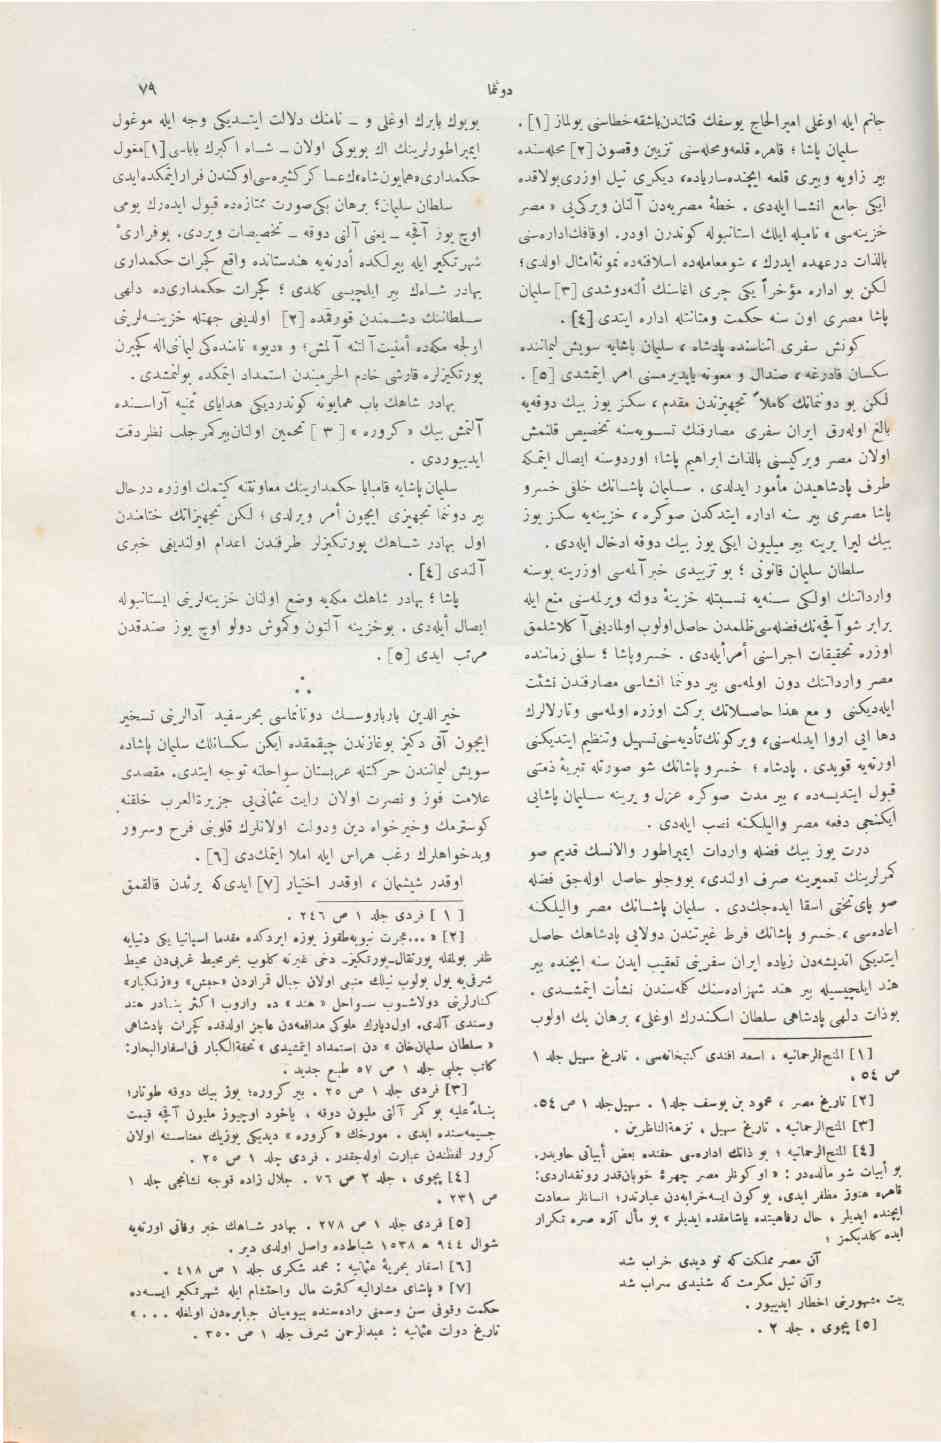 دوننما
٧٩
جانم ايله اوغلى اميرالحاج يوسفك قتلندن باشقه خطاسى بولماز [١] .
سليمان پاشا ؛ قاهره قلعه ومحله سى تزيين وقصون [٢] محله سنده
بير زاويه وبيرى قلعه ايچنده سارياده، ديكرى نيل اوزرى بولاقده
ايكى جامع انشا ايله دى . خطهٔ مصريه دن آلنان ويركى يى « مصر
خزينه سى » ناميله ايلك استانبوله كوندرن اودر. اوقافك اداره سنى
بالذات درعهده ايدرك ، شو معامله ده اسلافنه ده نمونهٔ امثال اولدى؛
لكن بو اداره مؤخراً يكى چرى اغاسنك ألنه دوشدى [٣] سليمان
پاشا مصرى اون سنه حكمت ومتانتله اداره ايتدى [٤] .
كونش سفرى اثناسنده پادشاه ، سليمان پاشايه سويش ليماننده
سكسان قادرغه ، صندال و معونه ياپديرمسنى امر ايتمشدى [٥] .
لكن بو دوننمانك كاملاً تجهيزندن مقدم ، سكز يوز بيك دوقه يه
بالغ اوله رق ايران سفرى مصارفنك تسويه سنه تخصيص قلنمش
اولان مصر ويركيسنى بالذات ابراهيم پاشا؛ اوردوسنه ايصال ايتمكه
طرف پادشاهيدن مأمور ايدلدى . سليمان پاشانك خلفى خسرو
پاشا مصرى بير سنه اداره ايتدكدن صوكره ، خزينه يه سكز يوز
بيك ليرا يرينه بير ميليون ايكى يوز بيك دوقه ادخال ايله دى .
سلطان سليمان قانونى ؛ بو تزييدى خبر آلمه سى اوزرينه بوسنه
وارداتنك اولكى سنه يه نسبتله خزينهٔ دولته ويرلمه سنى منع ايله
برابر شو آقچه نك فضله سى ظلمدن حاصل اولوب اولماديغى آكلاشلمق
اوزره تحقيقات اجراسنى أمر ايله دى . خسرو پاشا ؛ سلفى زماننده
مصر وارداتنك دون اولمه سى بير دوننما انشاسى مصارفندن نشئت
ايله ديكنى و مع هذا حاصلاتك بركت اوزره اولمه سى وتارلالرك
دها ايى اروا ايدلمه سنى، ويركونك تأديه سنى تسهيل وتنظيم ايتديكنى
اورته يه قويدى . پادشاه ؛ خسرو پاشانك شو صورتله تبرئهٔ ذمتنى
قبول ايتديسه ده ، بير مدت صوكره عزل و يرينه سليمان پاشايى
ايكنجى دفعه مصر واليلكنه نصب ايله دى .
درت يوز بيك فضله واردات ايمپراطور والانسك قديم صو
كمرلرينك تعميرينه صرف اولندى، بووجلو حاصل اوله جق فضله
صو پاى تختى اسقا ايده جك دى . سليمان پاشانك مصر واليلكنه
اعاده سى ، خسرو پاشانك فرط غيرتندن دولايى پادشاهك حاصل
ايتديكى انديشه دن زياده ايران سفرينى تعقيب ايدن سنه ايچنده بير
هند ايلچيسيله بير هند شهزاده سنك كلمه سندن نشأت ايتمشدى .
بوذات دلهى پادشاهى سلطان اسكندرك اوغلى، برهان بك اولوب
[١] المنح الرحمانيه . اسعد افندى كتبخانه سى . تاريخ سهيل جلد ١
ص ٥٤ .
[٢] تاريخ مصر ، محمود بن يوسف جلد ١ . سهيل جلد ١ ص ٥٤.
[٣] المنح الرحمانيه . تاريخ سهيل . نزهة الناظرين .
[٤] المنح الرحمانيه ؛ بو ذاتك اداره سى حقنده بعض أبياتى حاويدر.
بو أبيات شو مآلده در : « او كونلر مصر چهرهٔ خوبان قدر رونقداردى:
قاهره هنوز مظفر ايدى. بو كون ايسه خرابه دن عبارتدر؛ انسانلر سعادت
ايچنده ايديلر . حال رفاهيتده ياشامقده ايديلر » بو مآل آزه صره تكرار
ايده كلديكمز ؛
آن مصر مملكت كه تو ديدى خراب شد
وآن نيل مكرمت كه شنيدى سراب شد
بيت مشهورينى اخطار ايدييور .
[٥] پچوى . جلد ٢ .
بويوك بابرك اوغلى و ـ نامنك دلالت ايتديكى وجه ايله موغول
ايمپراطورلرينك اك بويوكى اولان ـ شاه اكبرك باباسى [١] مغول
حكمدارى «همايون شاه»ك عساكر كثيره سى اوكندن فرار ايتمكده ايدى
سلطان سليمان؛ برهان بكى صورت ممتازه ده قبول ايده رك يومى
اوچ يوز آقچه ـ يعنى آلتى دوقه ـ تخصيصات ويردى. بوفرارىٔ
شهرتكير ايله بيرلكده أدرنه يه هندستانده واقع كجرات حكمدارى
بهادر شاهك بير ايلچيسى كلدى ؛ كجرات حكمدارى ده دلهى
سلطاننك دشمندن قورقمده [٢] اولديغى جهتله خزينه لرينى
ارلجه مكه ده أمنيت آلتنه آلمش؛ و «ديو» نامنده كى ليمانى اله كچيرن
پورتكيزلره قارشى خادم الحرميندن استمداد ايتمكده بولنمشدى .
بهادر شاهك باب همايونه كوندرديكى هداياى ثمينه آراسنده
آلتمش بيك « كروره » [ ٣ ] تخمين اولنان بير كمر جلب نظر دقت
ايدييوردى .
سليمان پاشايه قامبايا حكمدارينك معاونتنه كيتمك اوزره درحال
بير دوننما تجهيزى ايچون أمر ويرلدى ؛ لكن تجهيزاتك ختامندن
اول بهادر شاهك پورتكيزلر طرفندن اعدام اولنديغى خبرى
آلندى [٤] .
پاشا ؛ بهادر شاهك مكه يه وضع اولنان خزينه لرينى ايستانبوله
ايصال أيله دى . بوخزينه آلتون وكموش دولو اوچ يوز صندقدن
مرتب ايدى [٥] .
∴
خير الدين بارباروسك دونانماسى بحر سفيد آدالرينى تسخير
ايچون آق دكيز بوغازندن چيقمقده ايكن سكسانلك سليمان پاشاده
سويش ليمانندن حركتله عربستان سواحلنه توجه ايتدى. مقصدى
علامت فوز و نصرت اولان رايت عثمانى يى جزيرة العرب خلقنه
كوسترمك وخير خواه دين ودولت اولانلرك قلوبنى فرح وسرور
وبدخواهلرك رغب هراس ايله املا ايتمك دى [٦] .
اوقدر شيشمان ، اوقدر اختيار [٧] ايدى كه يرندن قالقمق
[ ١ ] فردى جلد ١ ص ٢٤٦ .
[٢] « ...هجرت نبويه طقوز يوزه ايردكده مقدما اسپانيا يكى دنيايه
ظفر بولمغله پورتقال-پورتكيز- دخى غيرته كلوب بحر محيط غربى دن محيط
شرقى يه يول بولوب نيلك منبعى اولان جبال قمرلردن «حبش» و «زنكبار»
كنارلرينى دولاشوب سواحل « هند » ده واروب اكثر بنادر هند
وسندى آلدى. اول ديارك ملوكى مدافعه دن عاجز اولدقده كجرات پادشاهى
« سلطان سليمان خان » دن استمداد ايتمشيدى » تحفة الكبار فى اسفار البحار:
كاتب چلبى جلد ١ ص ٥٧ طبع جديد .
[٣] فردى جلد ١ ص ٢٥ . بير كروره؛ يوز بيك دوقه طوتار؛
بناءً عليه بو كمر آلتى مليون دوقه ، ياخود اوچيوز مليون آقچه قيمت
جسيمه سنده ايدى . مورخك « كروره » ديديكى يوزبيك معناسنه اولان
كرور لفظندن عبارت اوله جقدر . فردى جلد ١ ص ٢٥ .
[٤] پچوى . جلد ٢ ص ٧٦ . جلال زاده قوجه نشانجى جلد ١
ص ٢٣١ .
[٥] فردى جلد ١ ص ٢٧٨ . بهادر شاهك خبر وفاتى اورته يه
شوال ٩٤٤ = ١٥٣٨ شباطده واصل اولدى دير .
[٦] اسفار بحريهٔ عثمانيه : محمد شكرى جلد ١ ص ٤١٨ .
[٧] « پاشاى مشاراليه كثرت مال واحتشام ايله شهرتكير ايسه ده
حكمت وقوفى سن وسمنى راده سنده بيوميان جبابره دن اولمغله . . . »
تاريخ دولت عثمانيه : عبدالرحمن شرف جلد ١ ص ٣٥٠ .